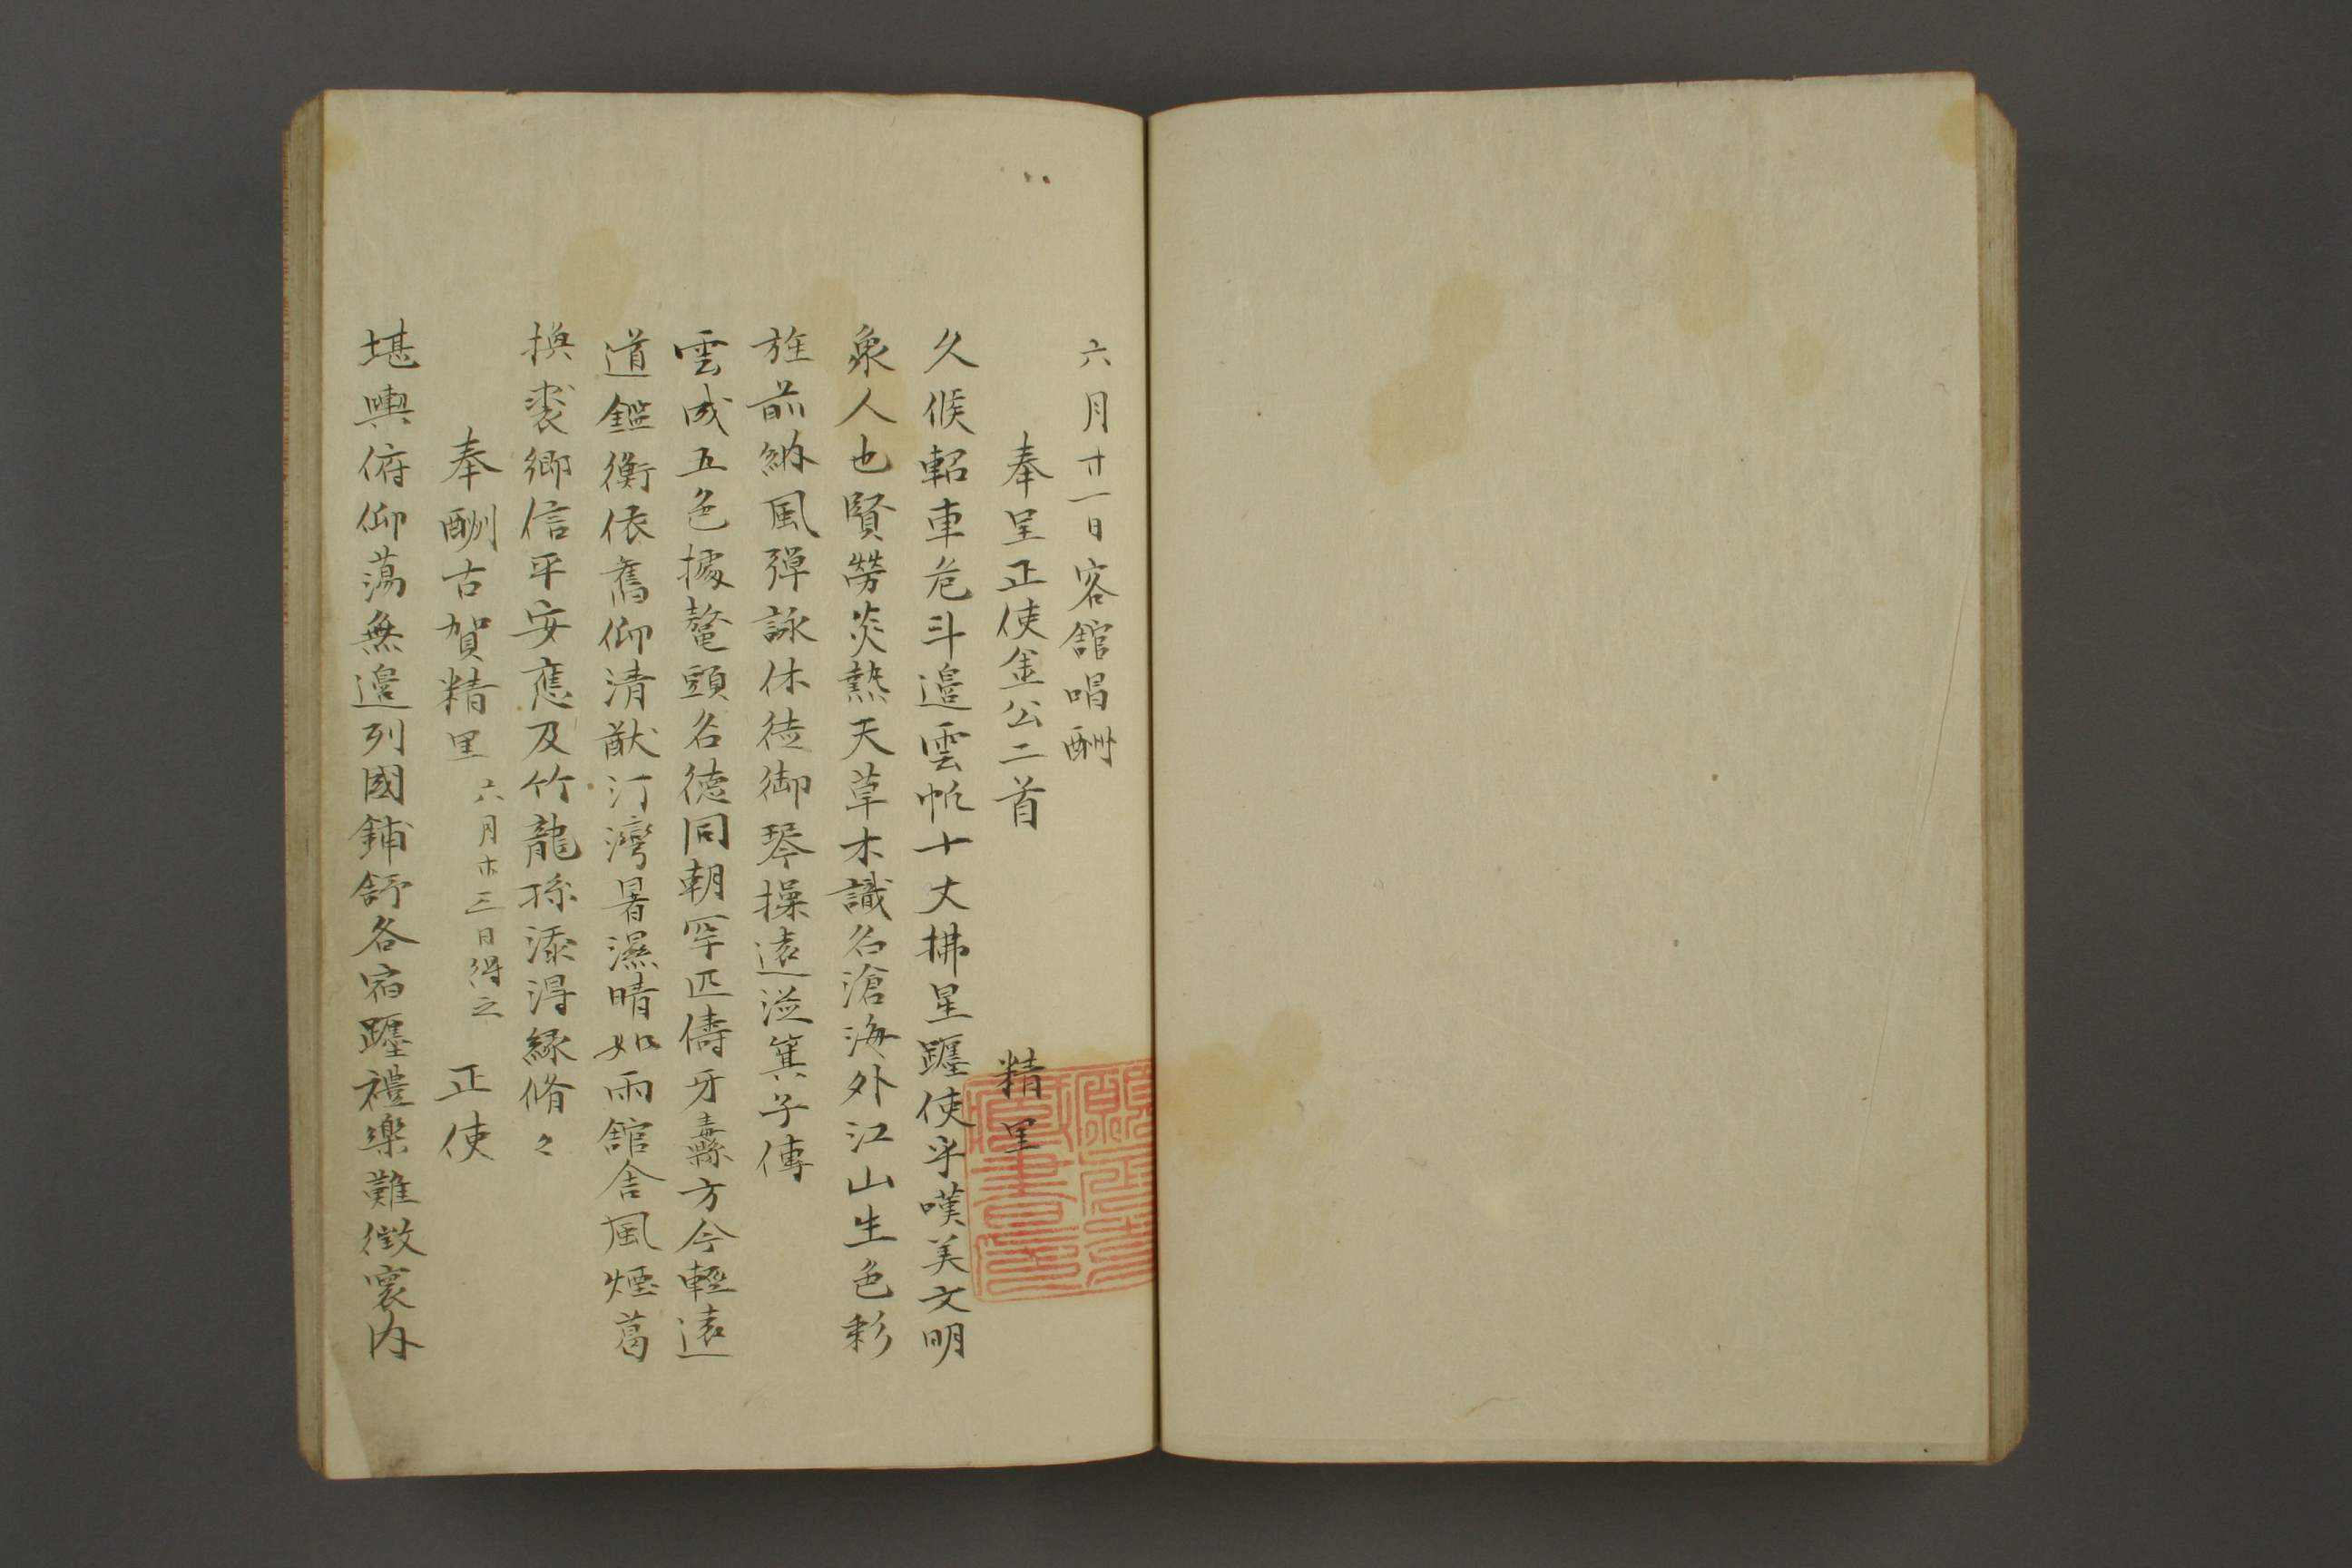 六月廿一日客舘唱酬
奉呈正使金公二首 精里
久候軺車危斗邉雲帆十丈拂星躔使乎嘆美文明
象人也賢勞炎熱天草木識名滄海外江山生色彩
旌前納風弾詠休徒御琴操遠溢箕子傳
雲成五色據鼇頭名徳同朝罕匹儔牙纛方今輕遠
道鑑衡依舊仰清猷汀灣暑濕晴如雨舘舎風煙葛
換裘郷信平安應及竹龍孫添得緑脩々
奉酬古賀精里 六月廿三日得之 正使
堪輿俯仰蕩無邉列國鋪舒各宿躔禮樂難徴寰内